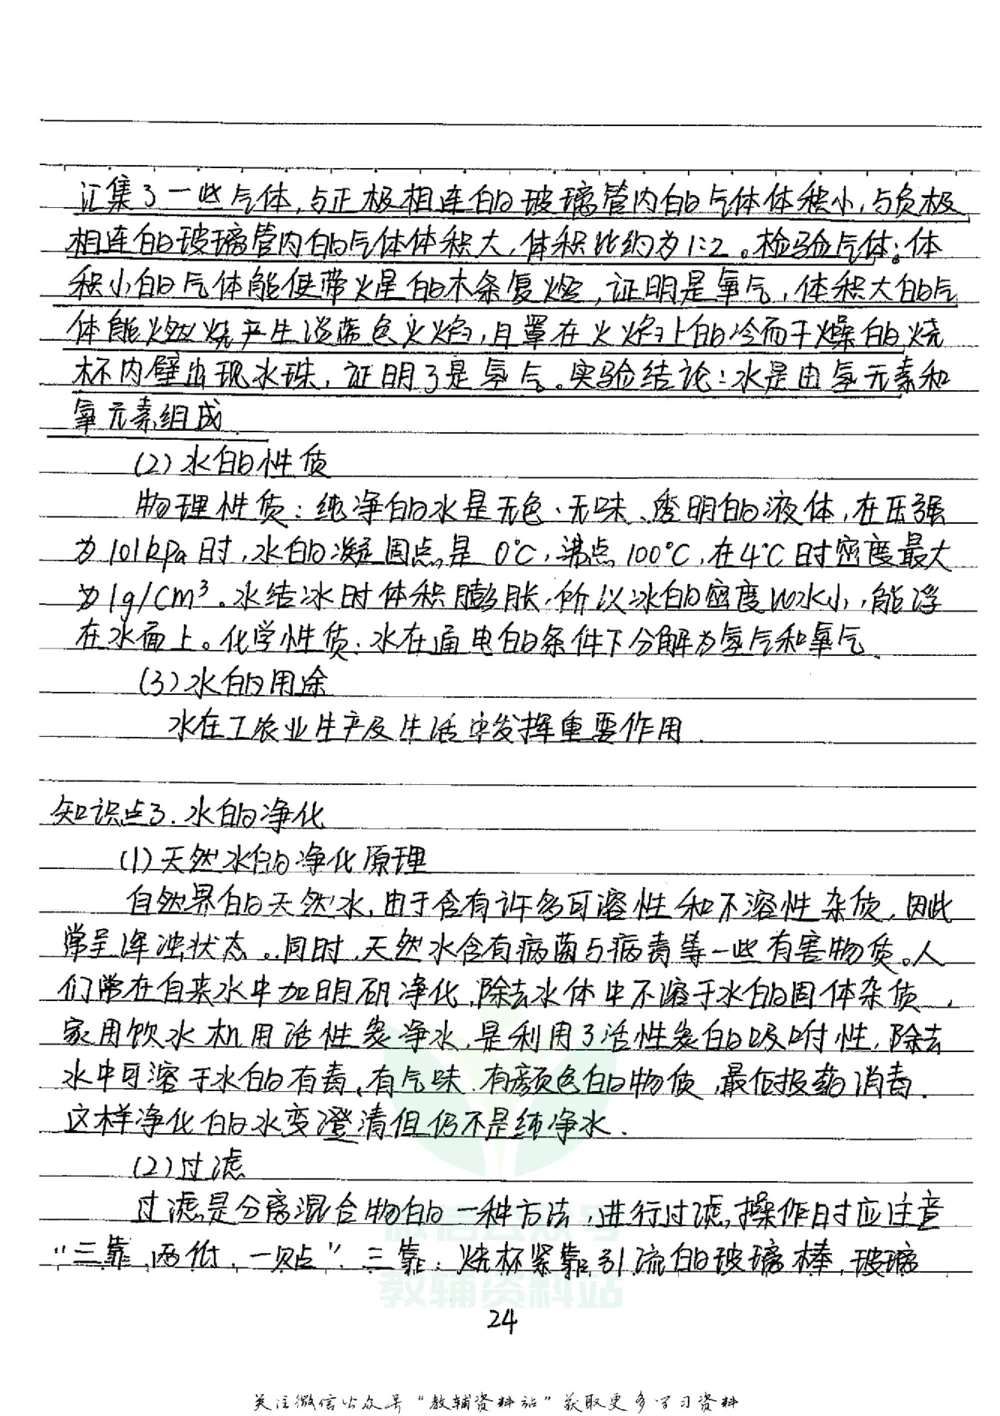 汇集了一些气体,与正极相连的玻璃管内的气体体积小,与负极
相连的玻璃管内的气体体积大,体积比约为1:2。检验气体:体
积小的气体能使带火星的木条复燃,证明是氧气,体积大的气
体能燃烧产生淡蓝色火焰,且罩在火焰上的冷而干燥的烧
杯内壁出现水珠,证明了是氢气。实验结论:水是由氢元素和
氧元素组成.
(2)水的性质
物理性质:纯净的水是无色、无味、透明的液体,在压强
为101kPa时,水的凝固点是0℃,沸点100℃,在4℃时密度最大
为1g/cm³。水结冰时体积膨胀,所以冰的密度比水小,能浮
在水面上。化学性质:水在通电的条件下分解为氢气和氧气.
(3)水的用途
水在工农业生产及生活中发挥重要作用.
知识点3.水的净化
(1)天然水的净化原理
自然界的天然水,由于含有许多可溶性和不溶性杂质,因此
常呈浑浊状态。同时,天然水含有病菌与病毒等一些有害物质。人
们常在自来水中加明矾净化,除去水体中不溶于水的固体杂质,
家用饮水机用活性炭净水,是利用了活性炭的吸附性,除去
水中可溶于水的有毒、有气味、有颜色的物质,最后投药消毒.
这样净化的水变澄清但仍不是纯净水.
(2)过滤
过滤是分离混合物的一种方法,进行过滤操作时应注意
“三靠、两低、一贴”.三靠:烧杯紧靠引流的玻璃棒,玻璃
微信公众号
教辅资料站
24
关注微信公众号“教辅资料站”获取更多学习资料